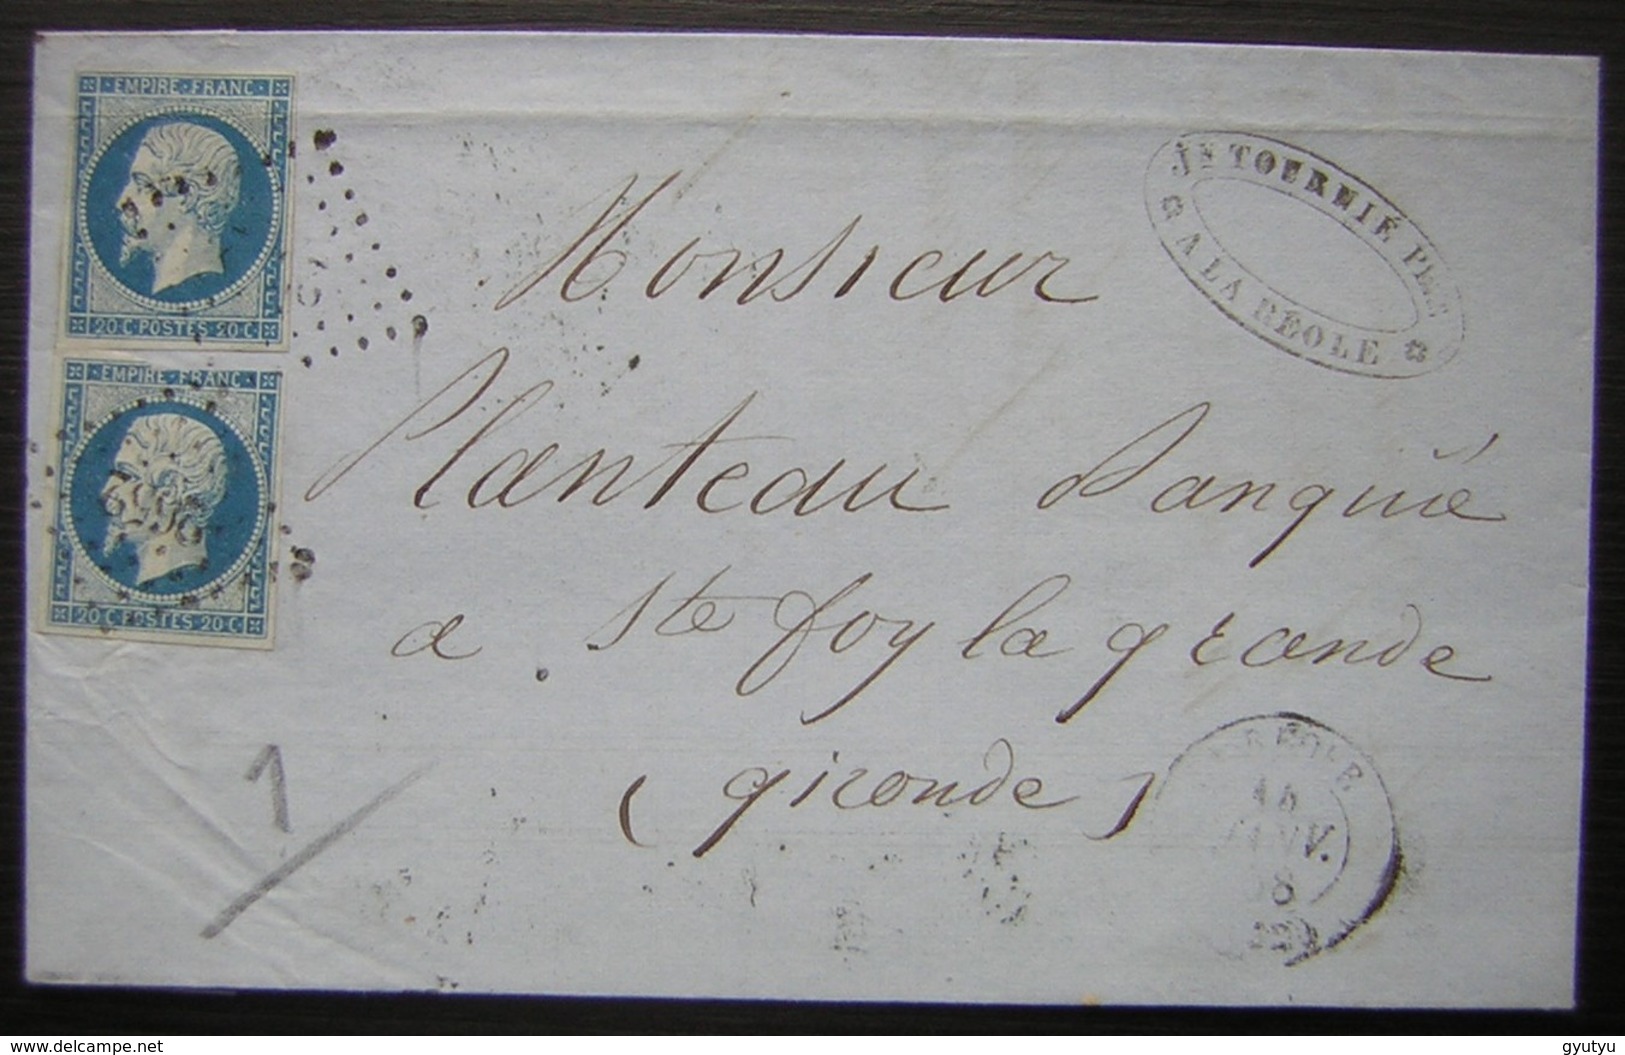 EMPIRE FRANC
20 C POSTES 20 C
EMPIRE FRANC
20 C POSTES 20 C
2652
Jⁿ TOURNIÉ
A LA RÉOLE
Monsieur
Planteau Banquié
a Ste foy la grande
(gironde)
LA RÉOLE
14
JANV.
58
1
delcampe.net
gyutyu